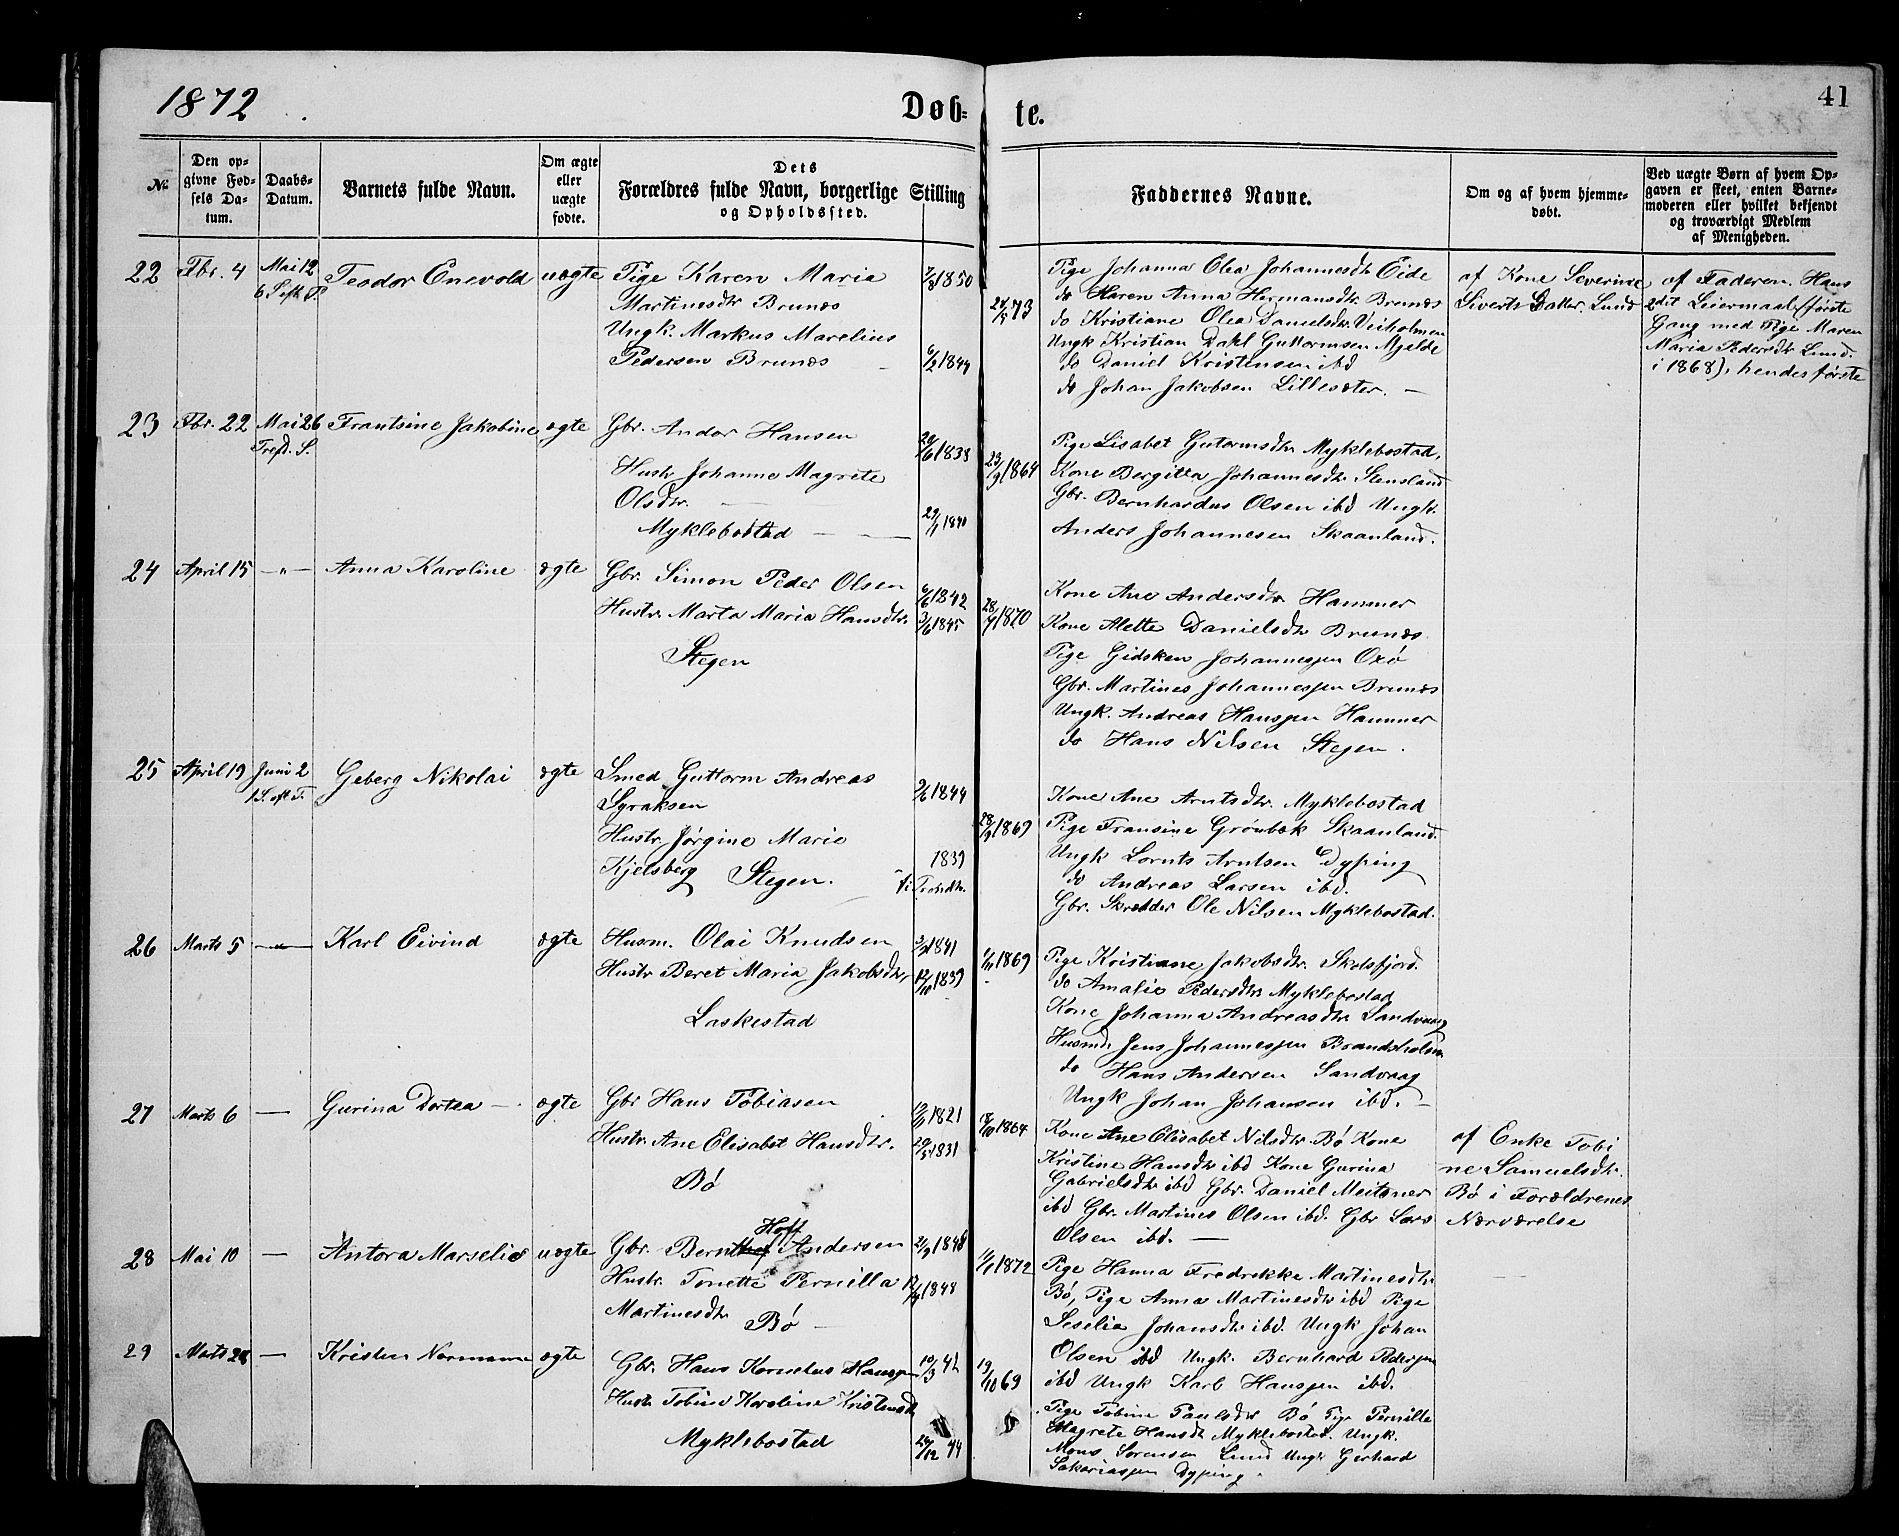 1872
Døb-
te.
41
№
Den op-
givne Fød-
sels Da-
tum.
Daabs-
Datum.
Varnets fulde Navn.
Om ægte
eller
uægte
fødte.
Dets
Forældres fulde Navn, borgerlige Stilling
og Opholdssted.
Faddernes Navne.
Om og af hvem hjemme-
døbt.
Ved uægte Børn af hvem Op-
gaven er skeet, enten Barne-
moderen eller hvilket bekjendt
og troværdigt Medlem
af Menigheden.
22 Fbr. 4 Mai 12
6 S. eft. P.
Teodor Enevold uægte
Pige Karen Maria
Martinesdtr Brunæs
Ungk. Markus Marelius
Pedersen Brunæs
1850
6/2 1844
73
Pige Johanna Olea Johannesdtr Eide
do Karen Anna Hermansdtr. Brunæs
do Kristiane Olea Danielsdtr. Veiholmen
Ungk Kristian Dahl Guttormsen Mjelde
do Daniel Kristensen ibd
do Johan Jakobsen Lillesæter. —
af Kone Severine
Siverts Datter. Lund
af Faderen. Hans
2det Leiermaal (første
Gang med Pige Maren
Maria Pedersdtr Lund
i 1868), hendes første
23 Fbr. 22 Mai 26
Trefd. S.
Frantsine Jakobine ægte
Gbr. Andor Hansen
Hustr Johanne Magrete
Olsdtr. —
Myklebostad — „ —
29/6 1838
29/1 1840
23/9 1864
Pige Lisabet Gutormsdtr. Myklebostad,
Kone Bergitta Johannesdtr. Stensland
Gbr. Bernhardus Olsen ibd Ungk.
Anders Johannesen Skaanland.
24 April 15 — „ — Anna Karoline ægte
Gbr. Simon Peder Olsen
Hustr. Marta Maria Hansdtr.
Stegen
6/6 1842
3/6 1845
1870
Kone Ane Andersdtr Hammer
Kone Alette Danielsdtr Brunæs
Pige Gidsken Johannessen Oxø
Gbr. Martines Johannessen Brunæs
Ungk. Andreas Hanssen Hammer
do Hans Nilsen Stegen.
25 April 19 Juni 2
1 S. eft T.
Geberg Nikolai ægte
Smed Guttorm Andreas
Syraksen
Hustr. Jørgine Marie
Kjelsberg Stegen.
1844
1839
i Trondh.
1869
Kone Ane Arntsdtr. Myklebostad
Pige Fransine Grønbæk Skaanland.
Ungk Lornts Arntsen Dyping
do Andreas Larsen ibd.
Gbr. Skrædder Ole Nilsen Myklebostad.
26 Marts 5 — „ — Karl Eivind ægte
Husm. Olai Knudsen
Hustr Beret Maria Jakobsdtr,
Laskestad
1841
12/10 1839
1869
Pige Kristiane Jakobsdtr. Skelsfjord.
do Amalie Pedersdtr Myklebostad
Kone Johanna Andreasdtr Sandvaag
Husmd. Jens Johannessen Brandsholmen
do Hans Andersen Sandvaag
Ungk Johan Johansen ibd. —
27 Marts 6 — Gurina Dortea — ægte
Gbr Hans Tobiasen
Hustr. Ane Elisabet Hansdtr.
Bø
1821
29/5 1831
1864
Kone Ane Elisabet Nilsdtr. Bø Kone
Kristine Hansdtr ibd Kone Gurina
Gabrielsdtr ibd Gbr. Daniel Meitsner
ibd Gbr. Martines Olsen ibd. Gbr Lars
Olsen ibd. —
af Enke Tobi
ne Samuelsdtr.
Bø i Forældrenes
Nærværelse
28 Mai 10 — Antora Marselie uægte
Hoff
Gbr. Bernt Andersen
Hustr. Tonette Pernilla
Martinesdtr
Bø —
1848
1848
1872
Pige Hanna Fredrekke Martinesdtr.
Bø, Pige Anna Martinesdtr ibd Pige
Seselie Johansdtr ibd. Ungk Johan
Olsen ibd Ungk. Bernhard Pedersen
ibd Ungk Karl Hanssen ibd.
29 Marts — Kristen Normann ægte
Gbr. Hans Kornelius Hanssen
Hustr Tobine Karoline Kristensdtr
Myklebostad
10/3 42
29/12 44
19/10 69
Pige Tobine Paulsdtr Bø Pige Pernille
Magrete Hansdtr Myklebostad. Ungk.
Mons Sorensen Lund Ungk Gerhard
Sakariassen Dyping.